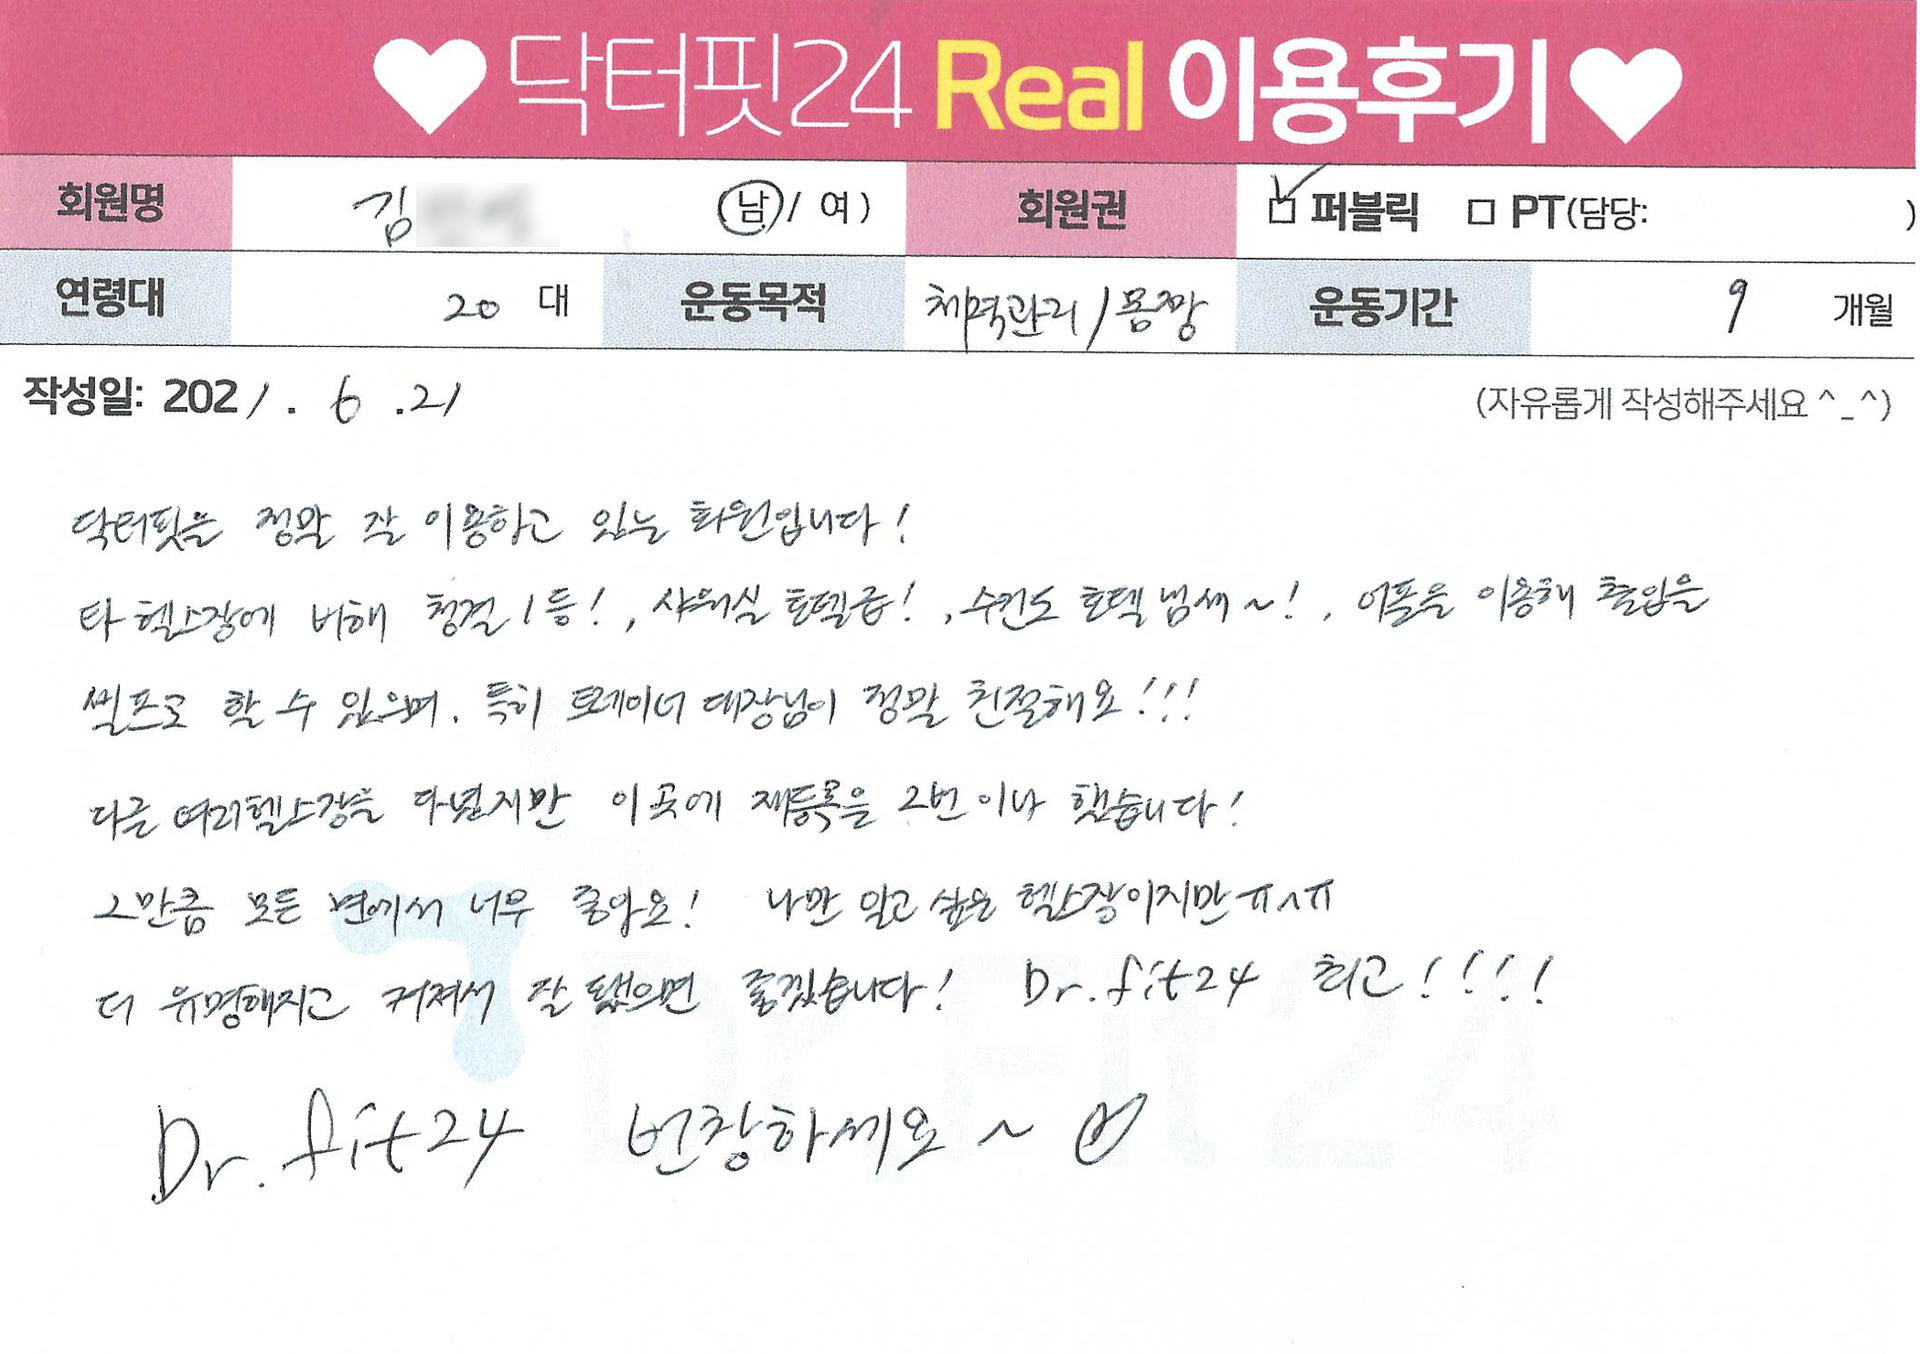 ♥닥터핏24 Real 이용후기♥
회원명 김 (남 / 여) 회원권 ☑ 퍼블릭 □ PT(담당: )
연령대 20 대 운동목적 체력관리/몸짱 운동기간 9 개월
작성일: 2021. 6.21 (자유롭게 작성해주세요 ^_^)
닥터핏을 정말 잘 이용하고 있는 회원입니다!
타 헬스장에 비해 청결 1등!, 샤워실 호텔급!, 수건도 호텔냄새~!, 어플을 이용해 출입을
셀프로 할 수 있으며. 특히 트레이너 대장님이 정말 친절해요!!!
다른 여러헬스장을 다녔지만 이곳에 재등록을 2번이나 했습니다!
그만큼 모든 면에서 너무 좋아요! 나만 알고싶은 헬스장이지만ㅠㅅㅠ
더 유명해지고 커져서 잘 됐으면 좋겠습니다! Dr.fit24 최고!!!!
Dr.fit24 번창하세요~♡
Dr Fit 24